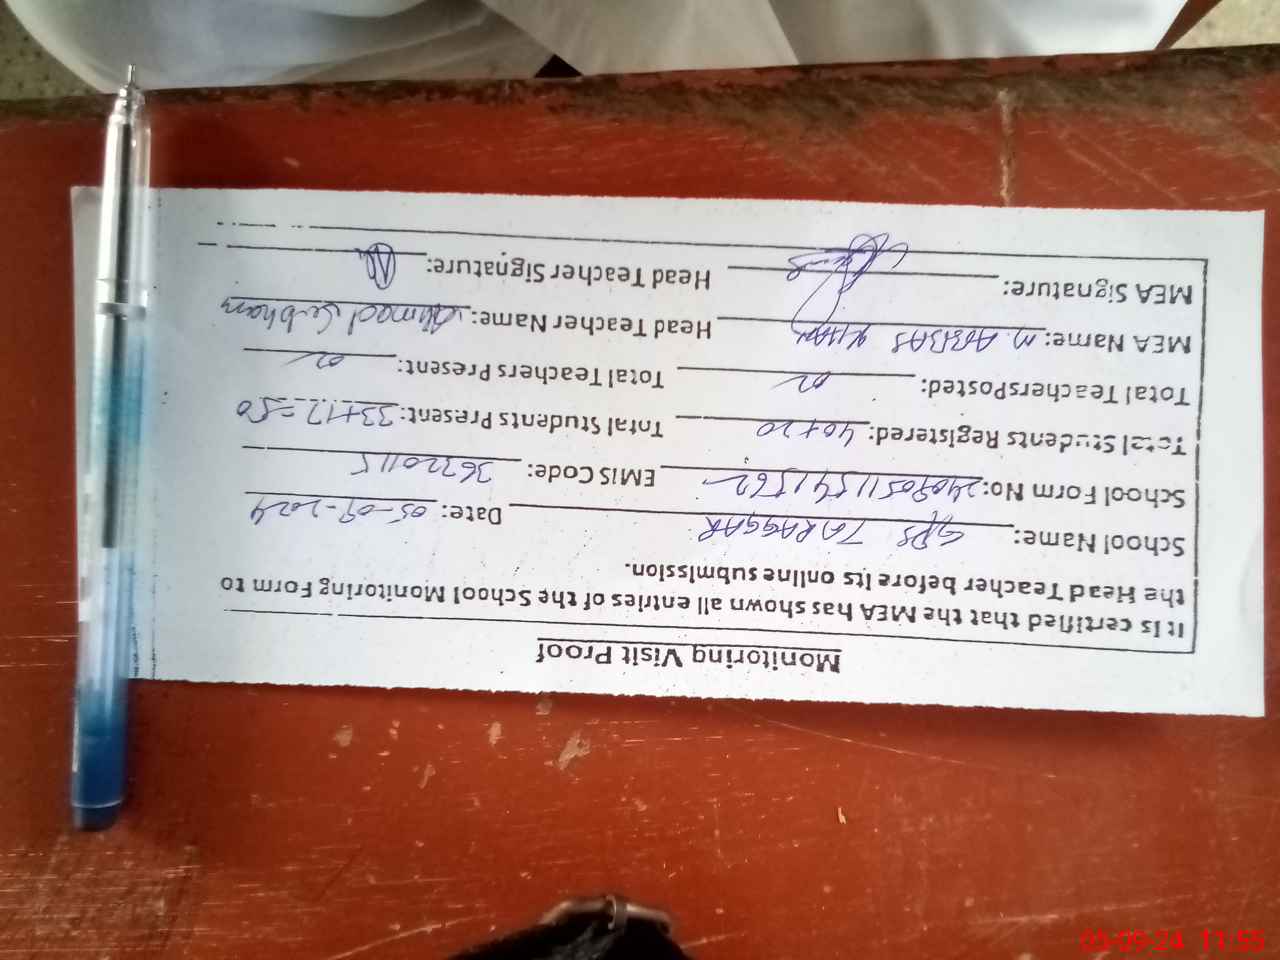 Monitoring Visit Proof
It is certified that the MEA has shown all entries of the School Monitoring Form to
the Head Teacher before its online submission.
School Name: GPS TARAGGAR Date: 05-09-2024
School Form No: EMIS Code: 36320115
Total Students Registered: 40+20 Total Students Present: 33+17=50
Total Teachers Posted: 02 Total Teachers Present: 02
MEA Name: M. ABBAS KHAN Head Teacher Name: Ahmad Subhani
MEA Signature: Head Teacher Signature:
05-09-24 11:55